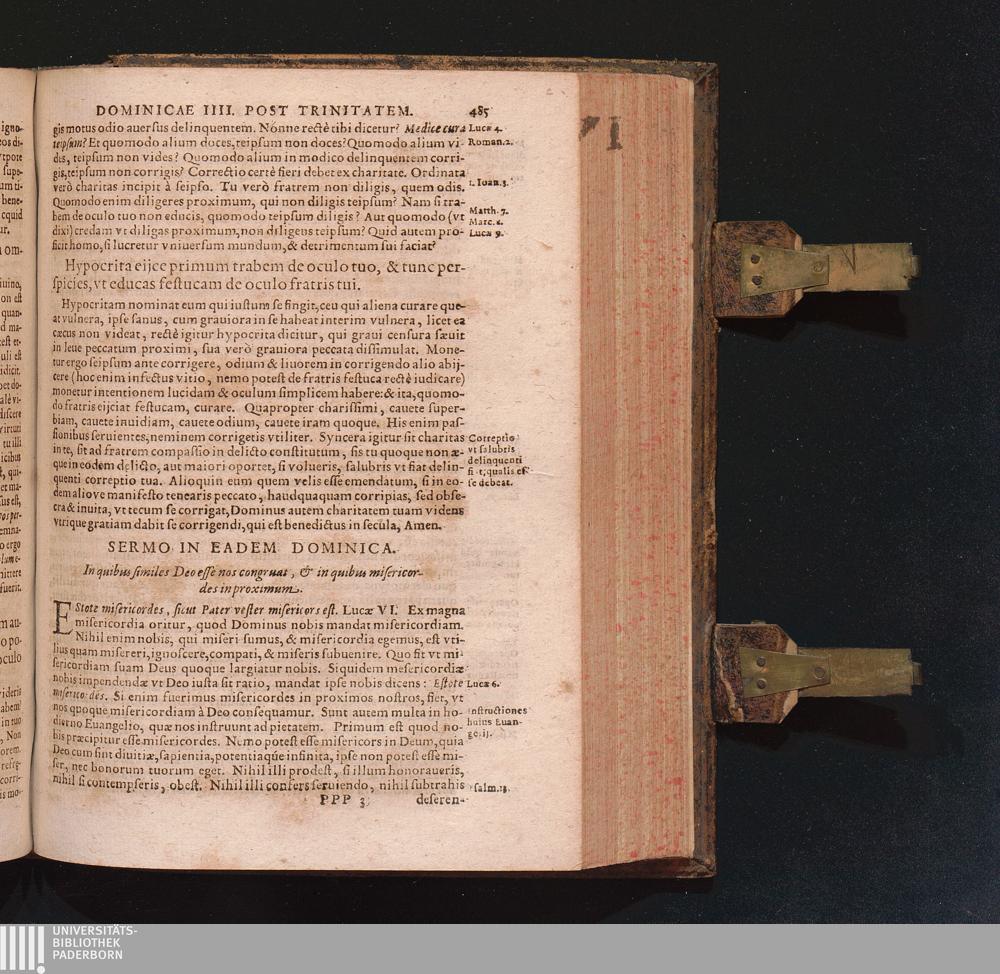 DOMINICAE IIII. POST TRINITATEM. 485
gis motus odio auersus delinquentem. Nónne rectè tibi dicetur? Medice cura
teipsum? Et quomodo alium doces, teipsum non doces? Quomodo alium vi-
des, teipsum non vides? Quomodo alium in modico delinquentem corri-
gis, teipsum non corrigis? Correctio certè fieri debet ex charitate. Ordinata
verò charitas incipit à seipso. Tu verò fratrem non diligis, quem odis.
Quomodo enim diligeres proximum, qui non diligis teipsum? Nam si tra-
bem de oculo tuo non educis, quomodo teipsum diligis? Aut quomodo (vt
dixi) credam vt diligas proximum, non diligens teipsum? Quid autem pro-
ficit homo, si lucretur vniuersum mundum, & detrimentum sui faciat?
Lucæ 4.
Roman. 2.
1. Ioan. 3.
Matth. 7.
Marc.
Lucæ 9.
Hypocrita eijce primum trabem de oculo tuo, & tunc per-
spicies, vt educas festucam de oculo fratris tui.
Hypocritam nominat eum qui iustum se fingit, ceu qui aliena curare que-
at vulnera, ipse sanus, cum grauiora in se habeat interim vulnera, licet ea
cæcus non videat, rectè igitur hypocrita dicitur, qui graui censura sæuit
in leue peccatum proximi, sua verò grauiora peccata dissimulat. Mone-
tur ergo seipsum ante corrigere, odium & liuorem in corrigendo alio abij-
cere (hoc enim infectus vitio, nemo potest de fratris festuca rectè iudicare)
monetur intentionem lucidam & oculum simplicem habere: & ita, quomo-
do fratris eijciat festucam, curare. Quapropter charissimi, cauete super-
biam, cauete inuidiam, cauete odium, cauete iram quoque. His enim pas-
sionibus seruientes, neminem corrigetis vtiliter. Syncera igitur sit charitas
in te, sit ad fratrem compassio in delicto constitutum, sis tu quoque non æ-
que in eodem delicto, aut maiori oportet, si volueris, salubris vt fiat delin-
quenti correptio tua. Alioquin eum quem velis esse emendatum, si in eo-
dem alioue manifesto tenearis peccato, haudquaquam corripias, sed obse-
cra & inuita, vt tecum se corrigat, Dominus autem charitatem tuam videns
vtrique gratiam dabit se corrigendi, qui est benedictus in secula, Amen.
Correptio
vt salubris
delinquenti
fiat, qualis es-
se debeat.
SERMO IN EADEM DOMINICA.
In quibus similes Deo esse nos congruat, & in quibus misericor-
des in proximum.
EStote misericordes, sicut Pater vester misericors est. Lucæ VI. Ex magna
misericordia oritur, quod Dominus nobis mandat misericordiam.
Nihil enim nobis, qui miseri sumus, & misericordia egemus, est vti-
lius quam misereri, ignoscere, compati, & miseris subuenire. Quo fit vt mi-
sericordiam suam Deus quoque largiatur nobis. Siquidem misericordiæ
nobis impendendæ vt Deo iusta sit ratio, mandat ipse nobis dicens: Estote
misericordes. Si enim fuerimus misericordes in proximos nostros, fiet, vt
nos quoque misericordiam à Deo consequamur. Sunt autem multa in ho-
dierno Euangelio, quæ nos instruunt ad pietatem. Primum est quod no-
bis præcipitur esse misericordes. Nemo potest esse misericors in Deum, quia
Deo cum sint diuitiæ, sapientia, potentiaqúe infinita, ipse non potest esse mi-
ser, nec bonorum tuorum eget. Nihil illi prodest, si illum honoraueris,
nihil si contempseris, obest. Nihil illi confers seruiendo, nihil subtrahis
Lucæ 6.
Instructiones
huius Euan-
gelij.
Psalm. 15.
PPP 3 deseren-
UNIVERSITÄTS-
BIBLIOTHEK
PADERBORN